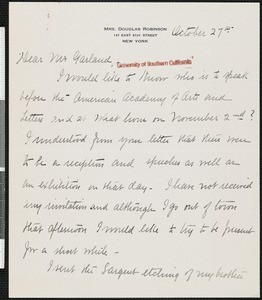 MRS. DOUGLAS ROBINSON
147 EAST 61ST STREET
NEW YORK
October 27th
Dear Mr Garland,
University of Southern California
I would like to know who is to speak
before the American Academy of Arts and
Letters and at what hour on November 2nd?
I understood from your letter that there were
to be a reception and speeches as well as
an exhibition on that day. I have not received
my invitation and although I go out of town
that afternoon I would like to try to be present
for a short while —
I sent the Sargent etching of my brother